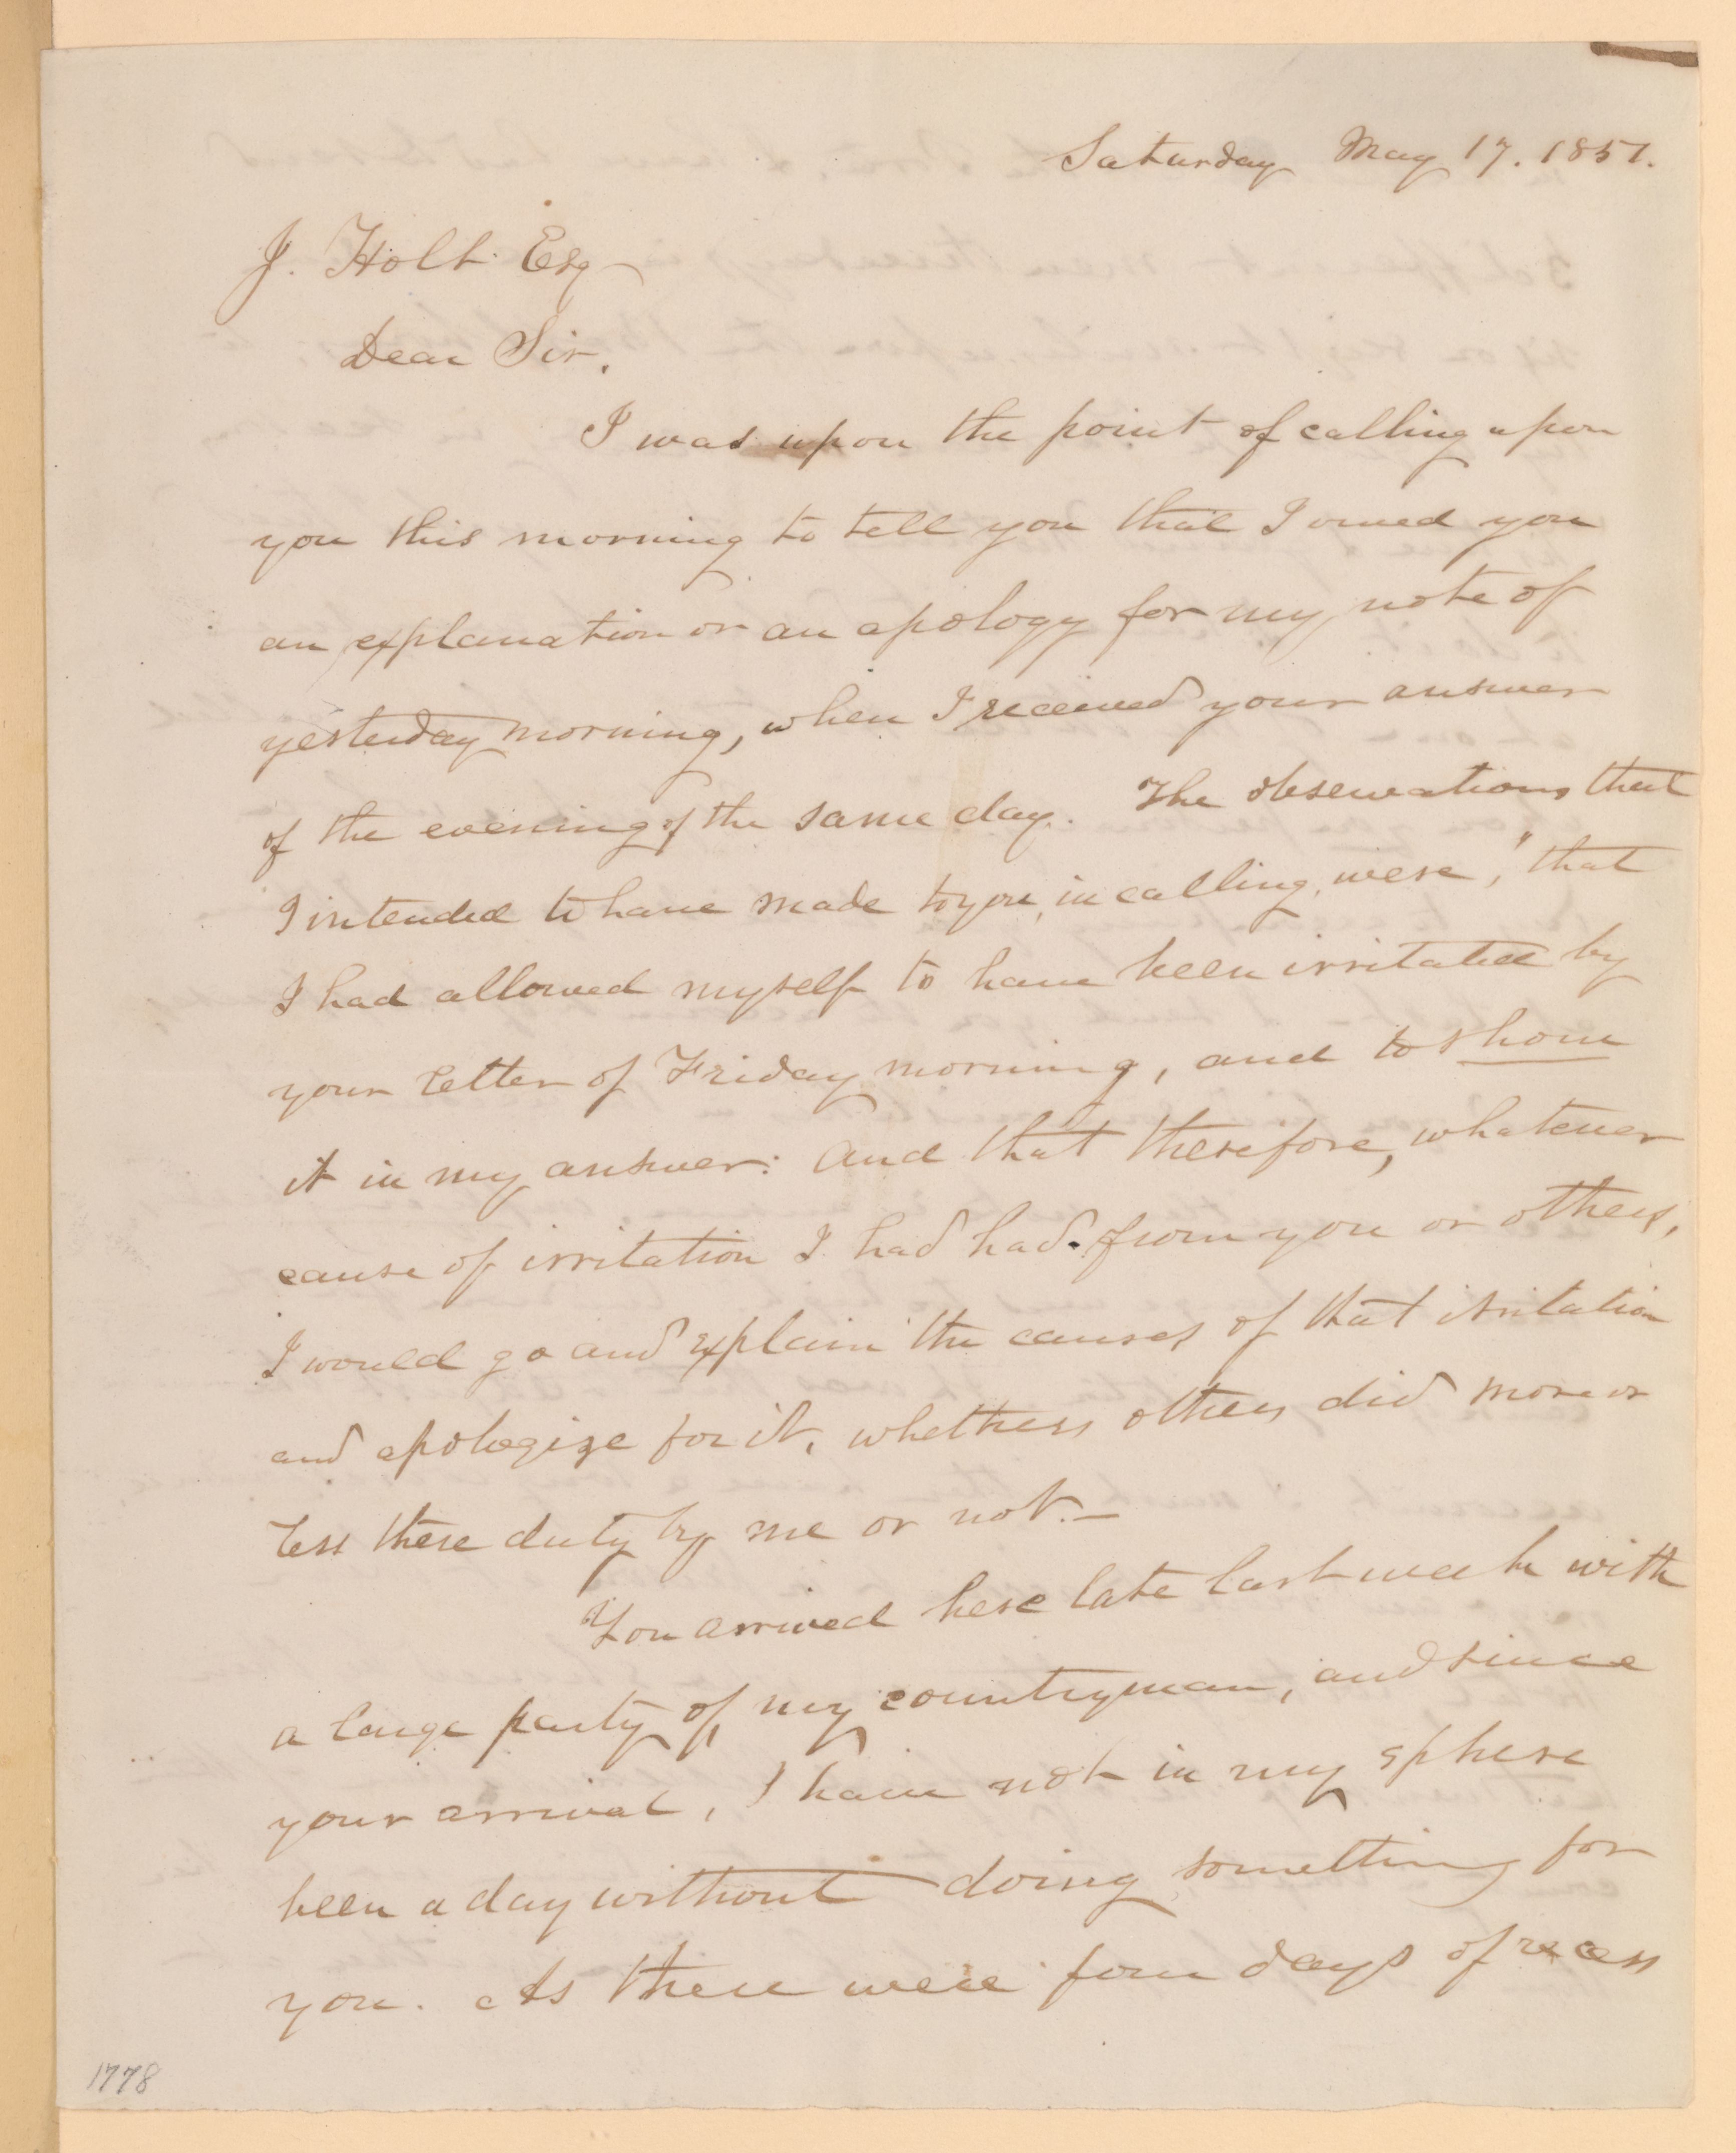 Saturday May 17. 1851.
J. Holt Esq
Dear Sir,
I was upon the point of calling upon
you this morning to tell you that I owed you
an explanation or an apology for my note of
yesterday morning, when I received your answer
of the evening of the same day. The observations that
I intended to have made to you, in calling, were, "that
I had allowed myself to have been irritated by
your letter of Friday morning, and to show
it in my answer: and that therefore, whatever
cause of irritation I had had from you or others,
I would go and explain the causes of that irritation
and apologize for it, whethers others did more or
less there duty by me or not.—
You arrived here late last week with
a large party of my countryman, and since
your arrival, I have not in my sphere
been a day without doing something for
you. As there were four days of recess
1778